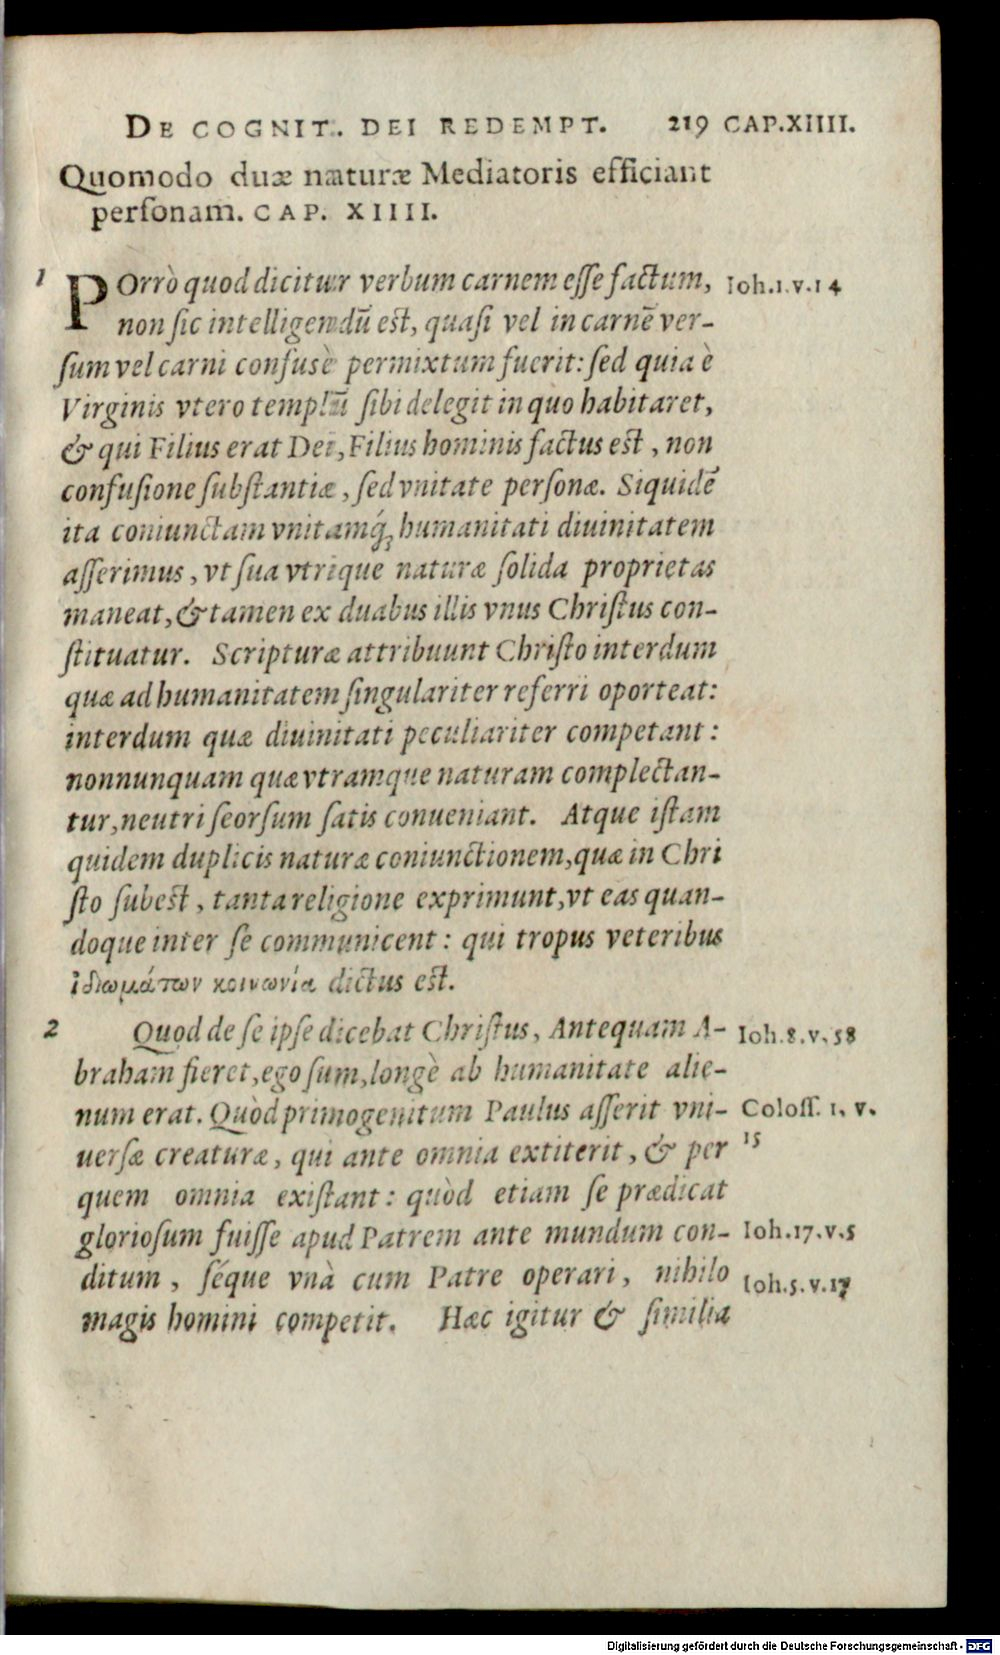 DE COGNIT. DEI REDEMPT. 219 CAP.XIIII.
Quomodo duæ naturæ Mediatoris efficiant
personam. CAP. XIIII.
1 POrrò quod dicitur verbum carnem esse factum, Ioh.1.v.14
non sic intelligendũ est, quasi vel in carnẽ ver-
sum vel carni confusè permixtum fuerit: sed quia è
Virginis vtero templũ sibi delegit in quo habitaret,
& qui Filius erat Dei, Filius hominis factus est, non
confusione substantiæ, sed vnitate personæ. Siquidẽ
ita coniunctam vnitamq́; humanitati diuinitatem
asserimus, vt sua vtrique naturæ solida proprietas
maneat, & tamen ex duabus illis vnus Christus con-
stituatur. Scripturæ attribuunt Christo interdum
quæ ad humanitatem singulariter referri oporteat:
interdum quæ diuinitati peculiariter competant:
nonnunquam quæ vtramque naturam complectan-
tur, neutri seorsum satis conueniant. Atque istam
quidem duplicis naturæ coniunctionem, quæ in Chri
sto subest, tanta religione exprimunt, vt eas quan-
doque inter se communicent: qui tropus veteribus
ἰδιωμάτων κοινωνία dictus est.
2 Quod de se ipse dicebat Christus, Antequam A- Ioh.8.v.58
braham fieret, ego sum, longè ab humanitate alie-
num erat. Quòd primogenitum Paulus asserit vni- Coloss. 1. v.
uersæ creaturæ, qui ante omnia extiterit, & per 15
quem omnia existant: quòd etiam se prædicat
gloriosum fuisse apud Patrem ante mundum con- Ioh.17.v.5
ditum, séque vnà cum Patre operari, nihilo Ioh.5.v.17
magis homini competit. Hæc igitur & similia
Digitalisierung gefördert durch die Deutsche Forschungsgemeinschaft - DFG